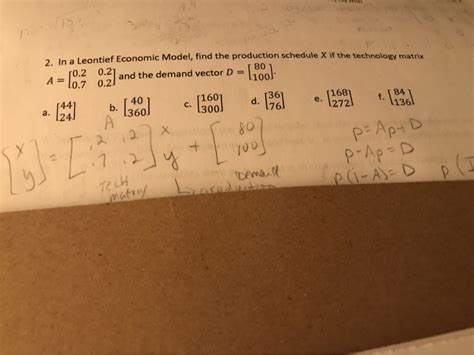 2. In a Leontief Economic Model, find the production schedule X if the technology matrix
A = [0.2 0.2; 0.7 0.2] and the demand vector D = [80; 100].
a. [44; 24] b. [40; 360] c. [160; 300] d. [36; 76] e. [168; 272] f. [84; 136]
A
[x; y] = [.2 .2; .7 .2] x y + [80; 100]
Tech matrix
production
Demand
p = Ap + D
p - Ap = D
p(1-A) = D